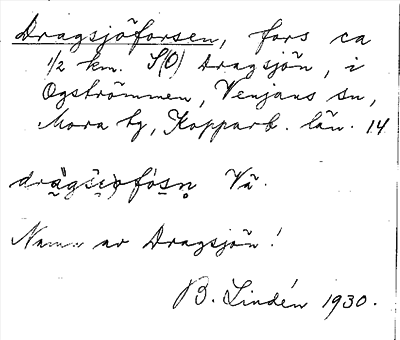 Dragsjöforsen, fors ca
1/2 km. S(O) Dragsjön, i
Ogströmmen, Venjans sn,
Mora tg, Kopparb. län. 14
Vä.
Namn av Dragsjön!
B. Lindén 1930.